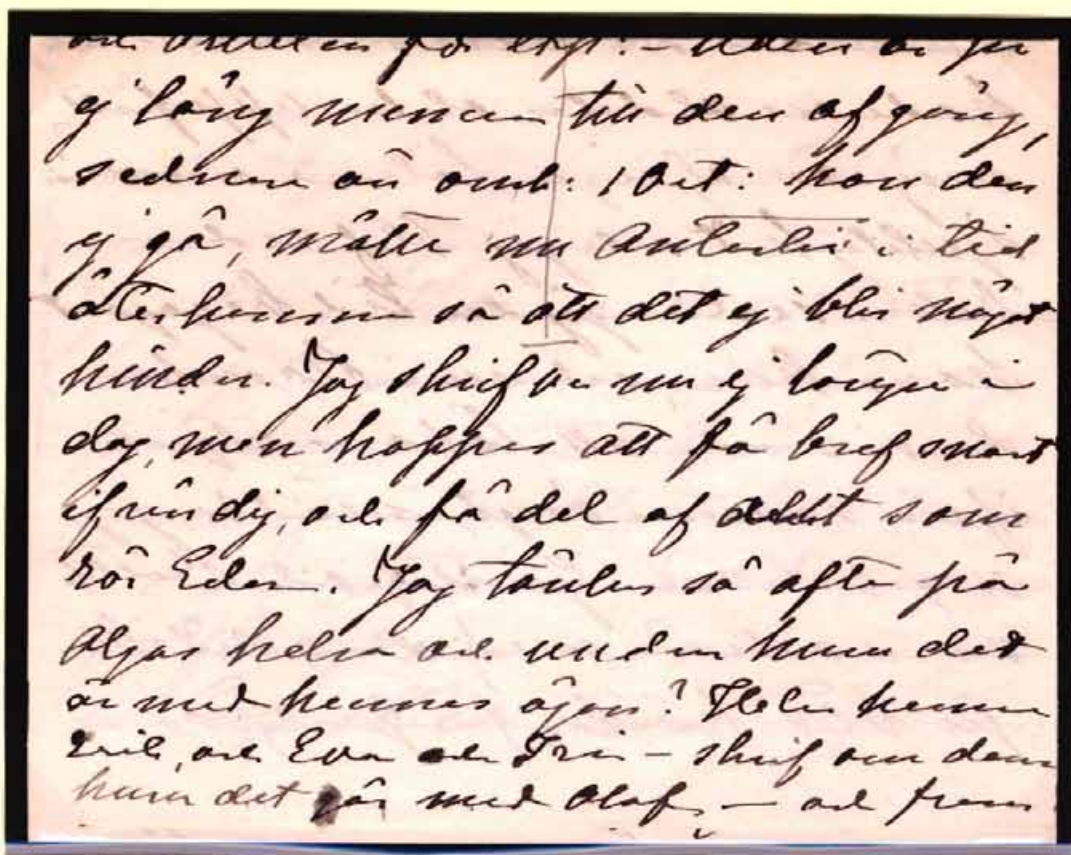 ej lång            till den afgång,
sednare än        1 Oct: kan den
ej gå, måtte nu            i tid
återkomma så att det ej blir något
hinder. Jag skrifver nu ej längre i
dag, men hoppas att få bref snart
ifrån dig, och få del af allt som
rör Eder. Jag tänker så ofta på
Olgas helsa och undrar huru det
är med hennes ögon? Helsa henne
Erik, och Eva och Iri – skrif om dem
huru det går med Olof, — och fram